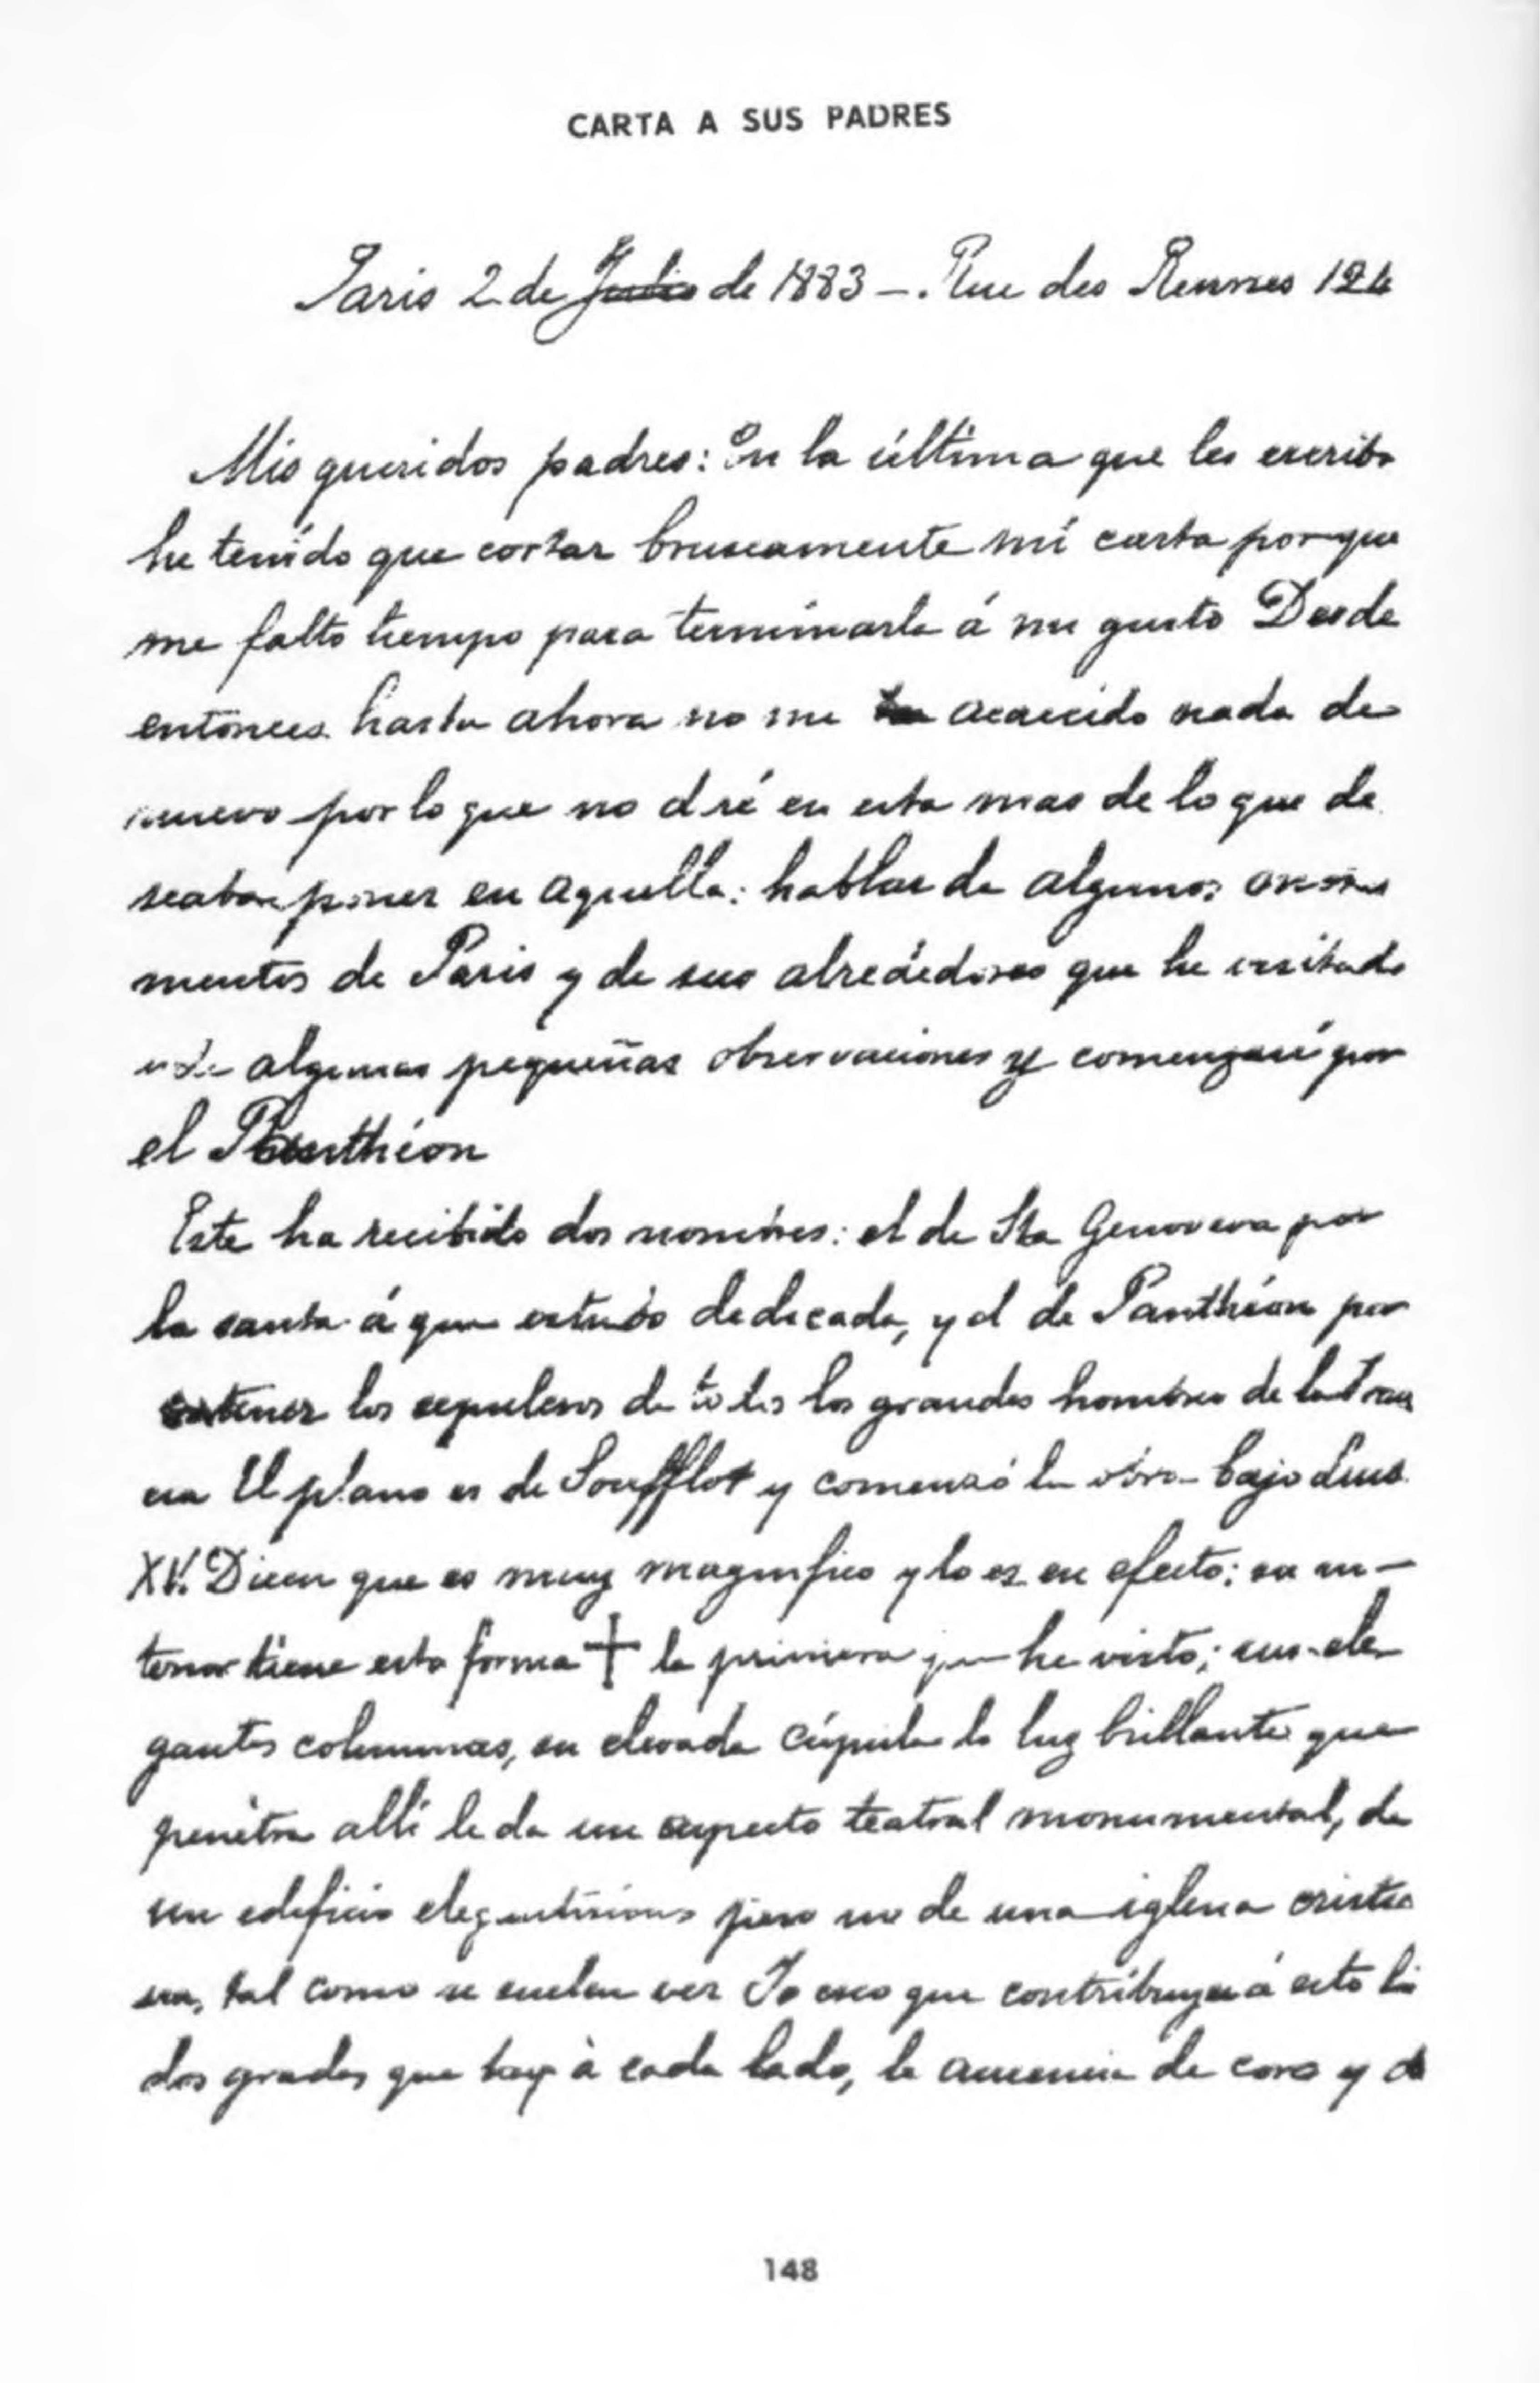 CARTA A SUS PADRES
Paris 2 de Julio de 1883 –. Rue des Rennes 124
Mis queridos padres: En la última que les escribo
he tenido que cortar bruscamente mi carta porque
me falto tiempo para terminarla á mi gusto Desde
entonces hasta ahora no me ha acaecido nada de
nuevo por lo que no diré en esta mas de lo que de
seaba poner en aquella: hablar de algunos
mentos de Paris y de sus alrededores que he visitado
algunas pequeñas observaciones y comenzaré por
el Panthéon
Este ha recibido dos nombres: el de Sta Genoveva por
la santa á quien estuvo dedicada, y el de Panthéon por
contener los sepulcros de todos los grandes hombres de la Fran
cia El plano es de Soufflot y comenzó la obra bajo Luis
XV. Dicen que es muy magnifico y lo es en efecto; su in–
terior tiene esta forma + la primera que he visto; sus ele
gantes columnas, su elevada cúpula la luz brillante que
penetra alli le da un aspecto teatral monumental, de
un edificio elegantisimo pero no de una iglesia cristia
na, tal como se suelen ver Yo creo que contribuyen á esto las
dos gradas que hay á cada lado, la ausencia de coro y de
148